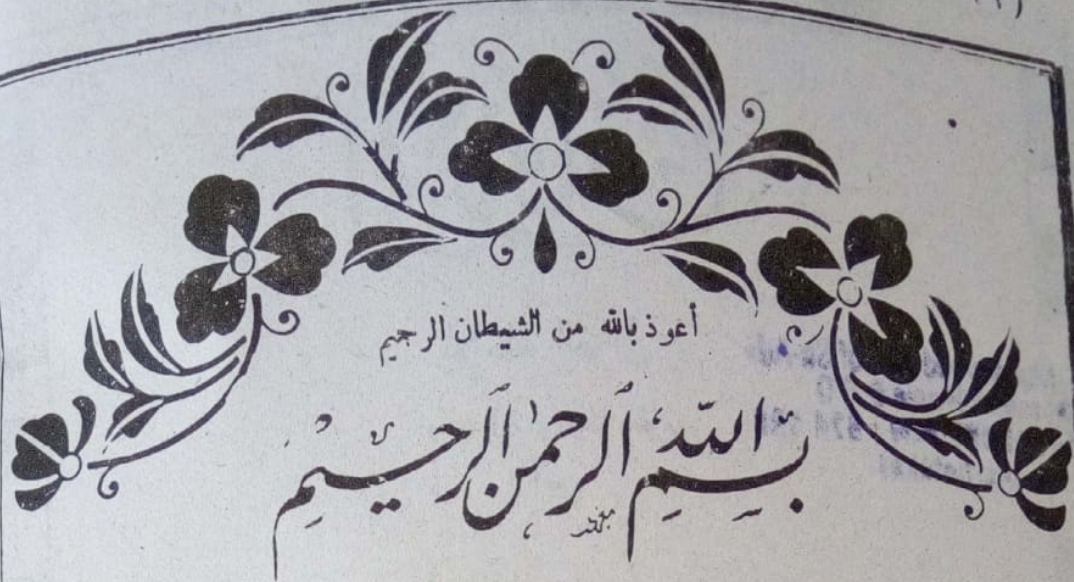 أعوذ بالله من الشيطان الرجيم
بِسْمِ اللّٰه الرحمن الرحيم